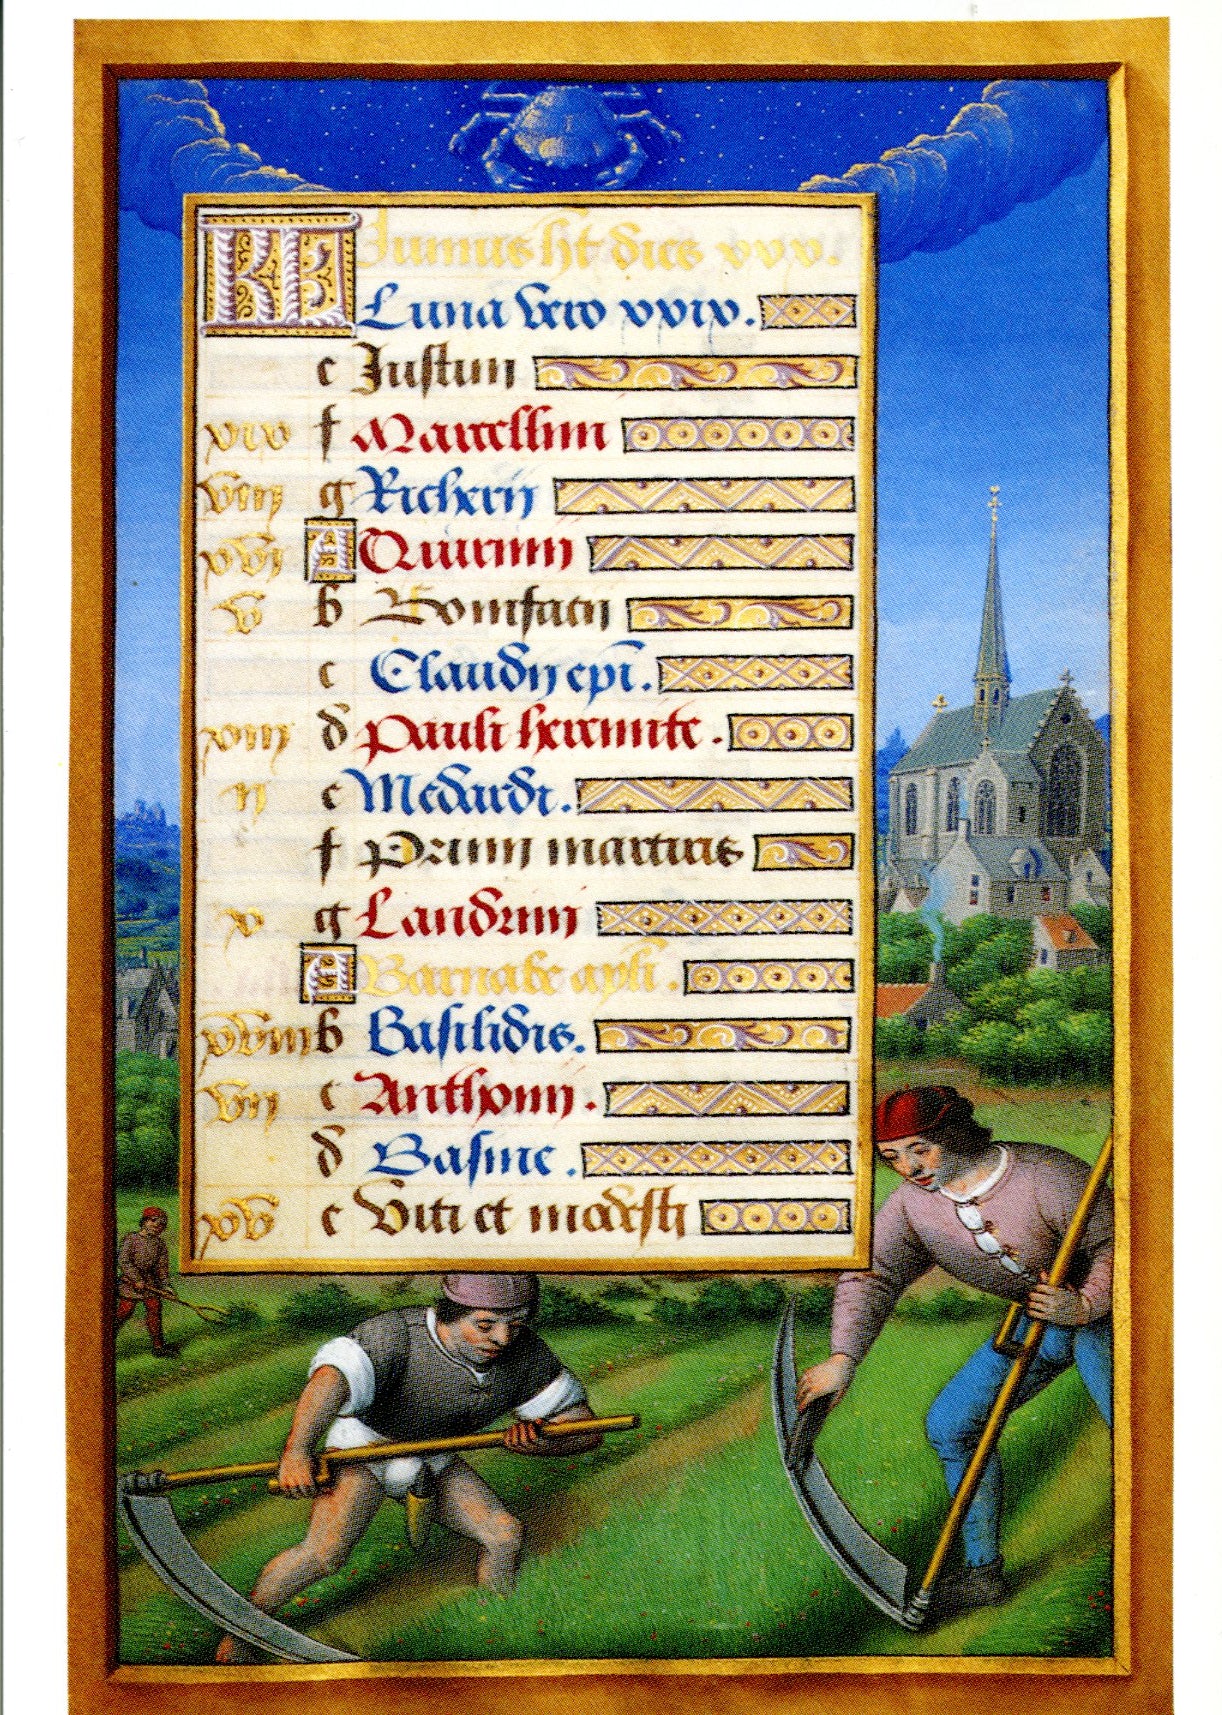 KL Junius ht dies xxx.
Luna vero xxix.
e Justini
xix f Marcellini
viij g Richerij
xvj A Quirini
v b Bonifacij
c Claudij epi.
xiij d Pauli heremite.
ij e Medardi.
f Primi martiris
x g Landrini
A Barnabe apli.
xviij b Basilidis.
vij c Anthonij.
d Basine.
xv e Viti et modesti